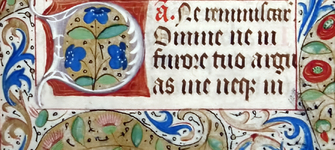 a. Ne reminiscar
Domine ne in
furore tuo argu
as me neqꝫ in